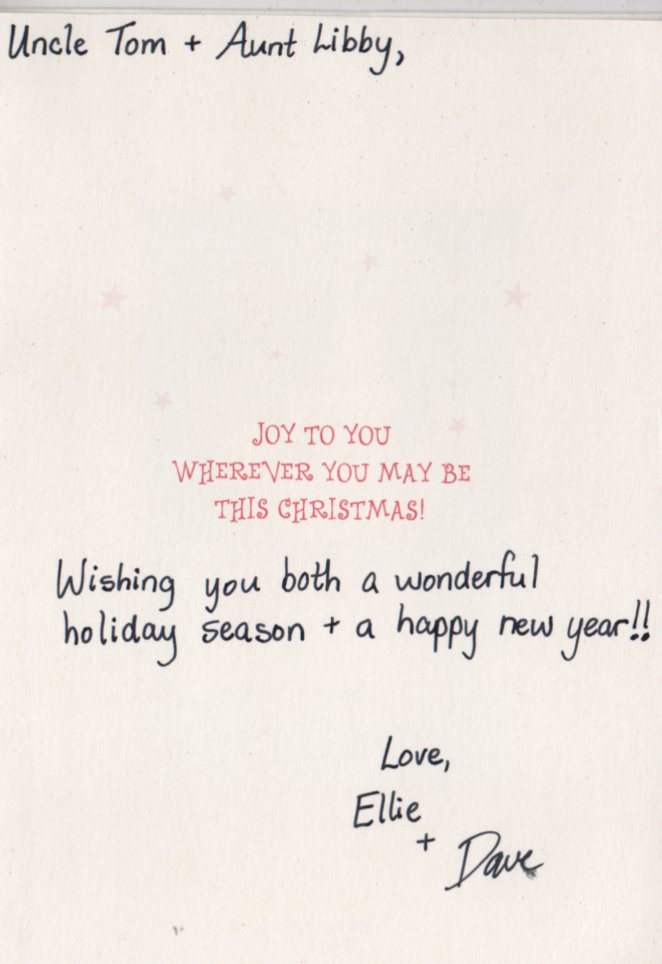 Uncle Tom + Aunt Libby,
JOY TO YOU
WHEREVER YOU MAY BE
THIS CHRISTMAS!
Wishing you both a wonderful
holiday season + a happy new year!!
Love,
Ellie
+ Dave